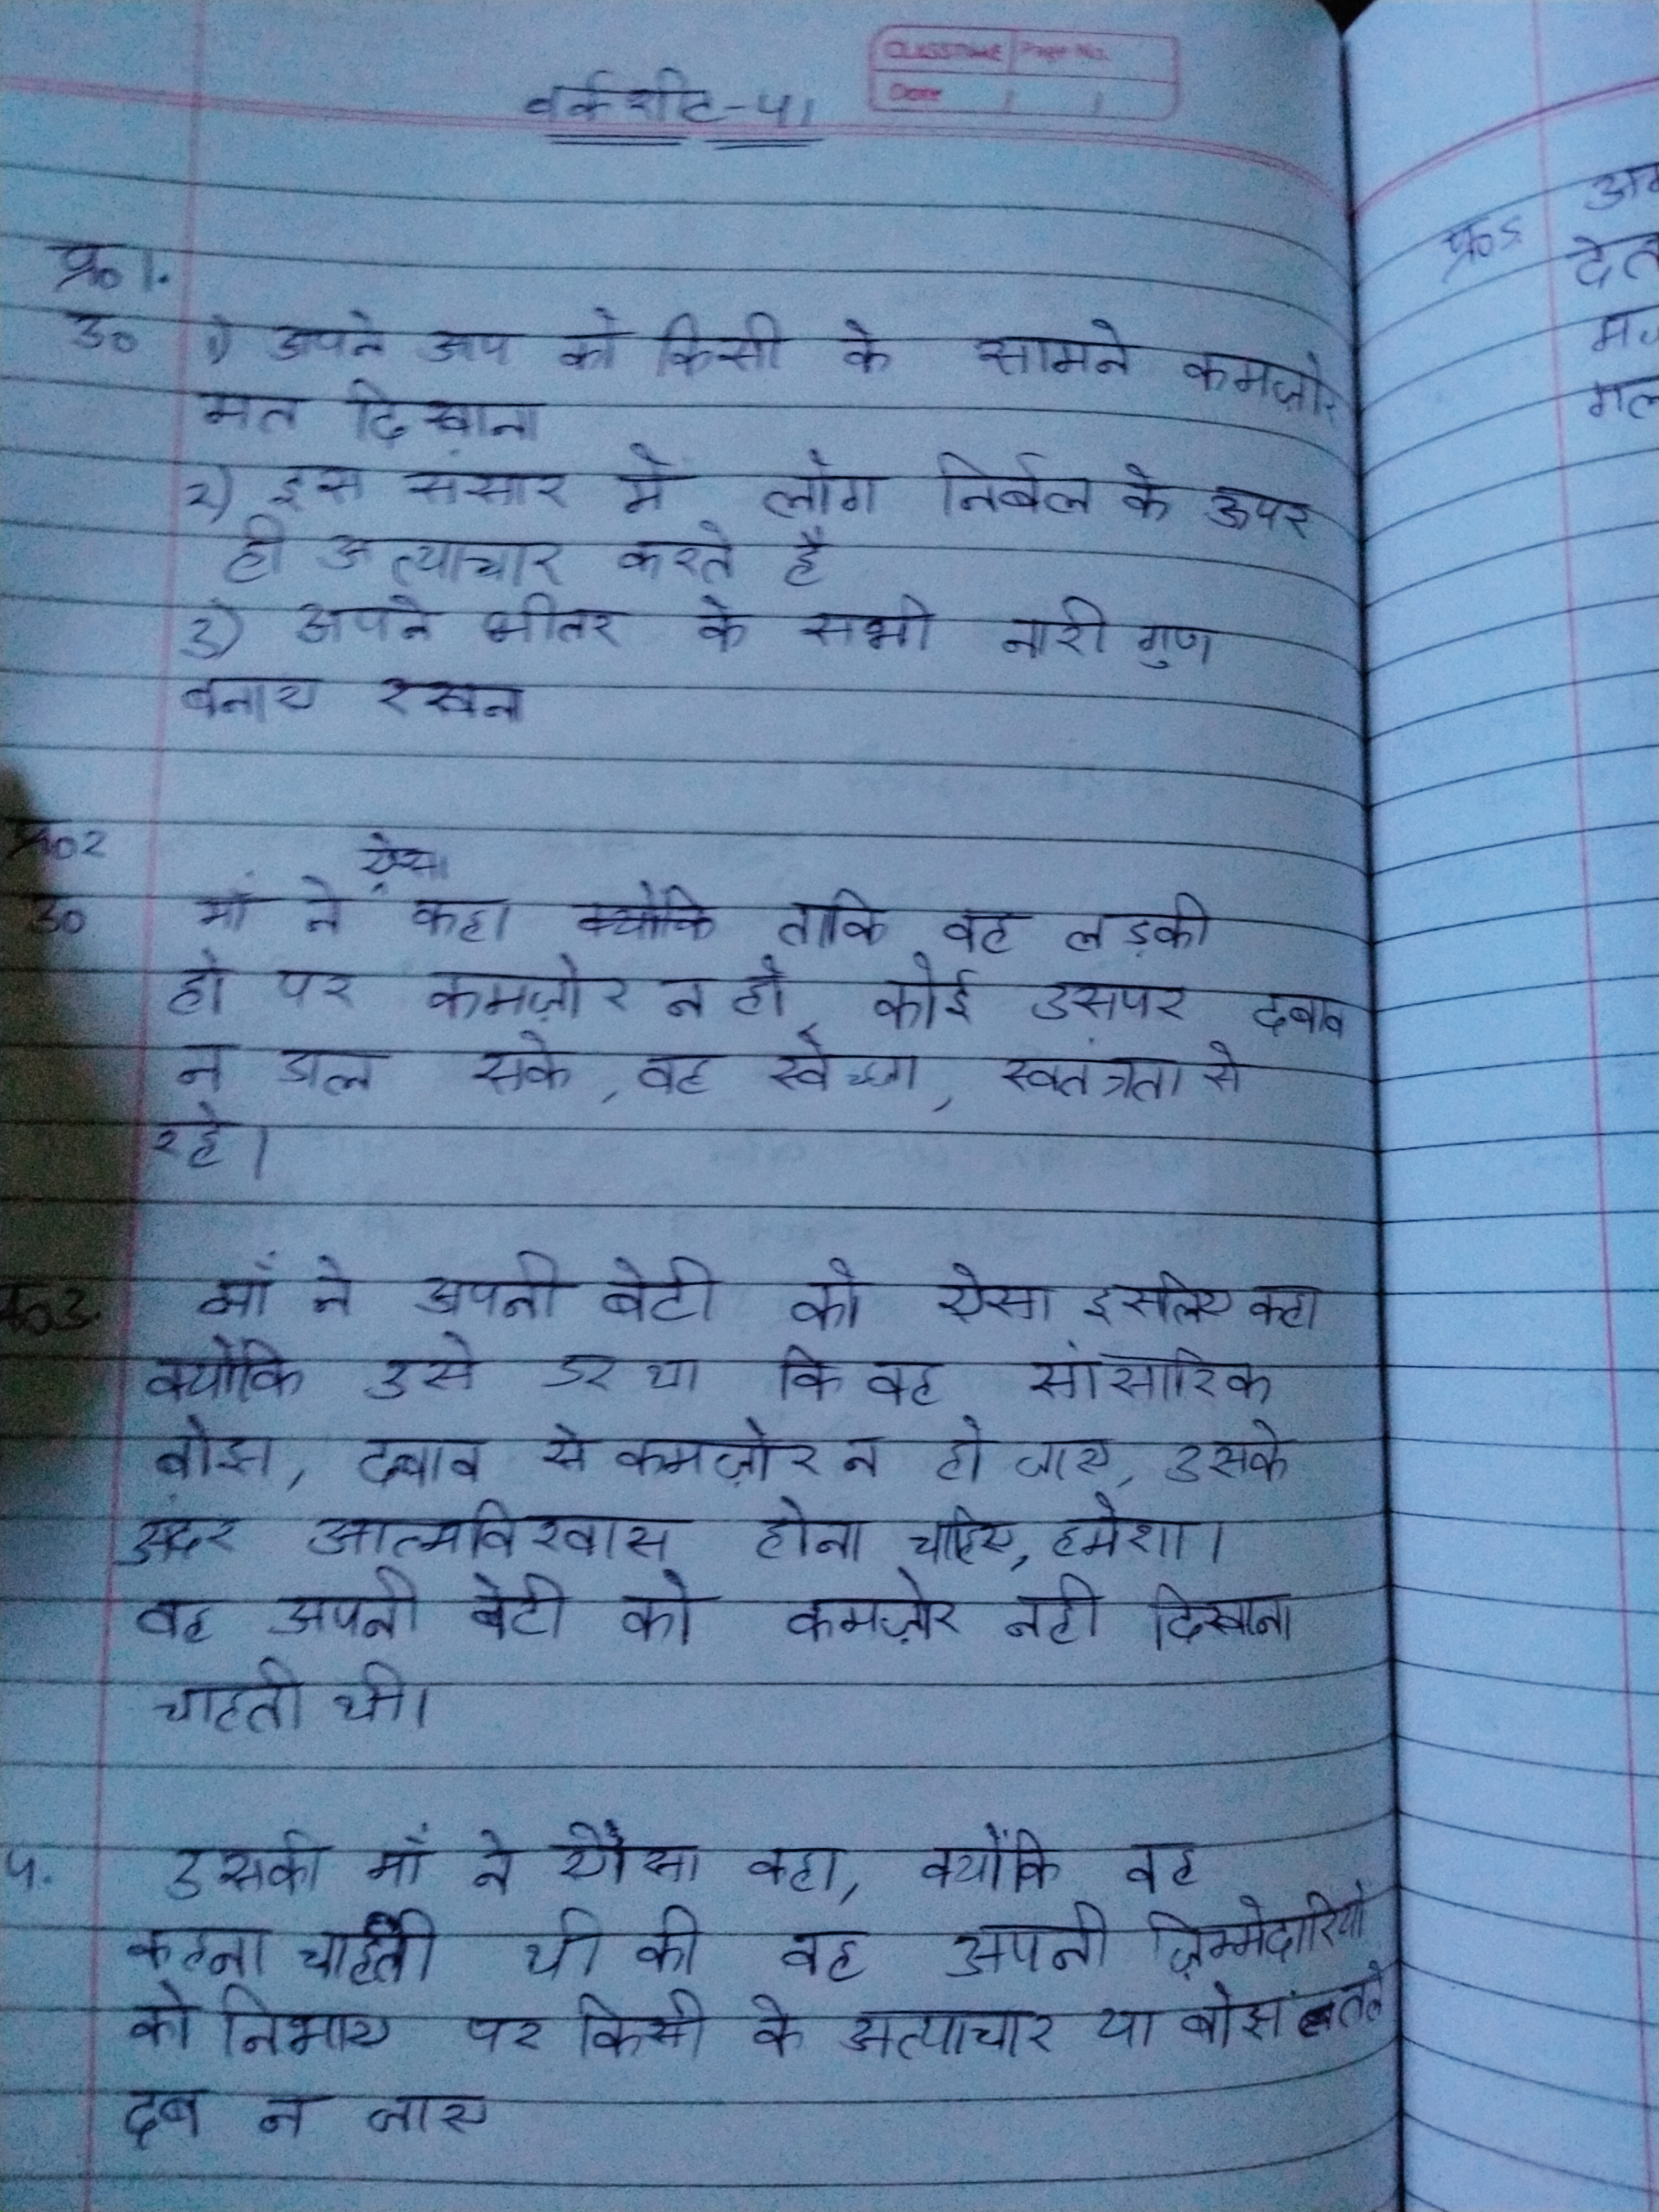 CLASSTIME Page No.
Date / /
वर्कशीट-41
प्र०1.
उ० 1) अपने अप को किसी के सामने कमज़ोर
मत दिखाना
2) इस संसार में लोग निर्बल के ऊपर
ही अत्याचार करते है
3) अपने भीतर के सभी नारी गुण
बनाए रखना
प्र०2
ऐसा
उ० माँ ने कहा क्योकि ताकि वह लड़की
हो पर कमज़ोर न हो, कोई उसपर दबाव
न डाल सके, वह स्वेच्छा, स्वतंत्रता से
रहे।
प्र०3. माँ ने अपनी बेटी को ऐसा इसलिए कहा
क्योंकि उसे डर था कि वह सांसारिक
बोझ, दबाव से कमज़ोर न हो जाए, उसके
अंदर आत्मविश्वास होना चाहिए, हमेशा।
वह अपनी बेटी को कमज़ोर नही दिखाना
चाहती थी।
4. उसकी माँ ने ऐसा कहा, क्योंकि वह
कहना चाहती थी की वह अपनी ज़िम्मेदारियो
को निभाए पर किसी के अत्याचार या बोझ तले
दब न जाए
प्र०5